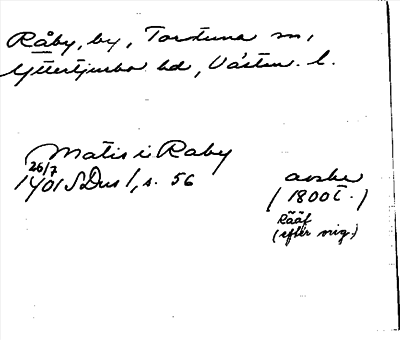 Råby, by, Tortuna sn,
Yttertjurbo hd, Västm. l.
Matis i Raby
26/7
1401 SDns 1, s. 56
avskr
(1800 t.)
Rääf
(efter mig)